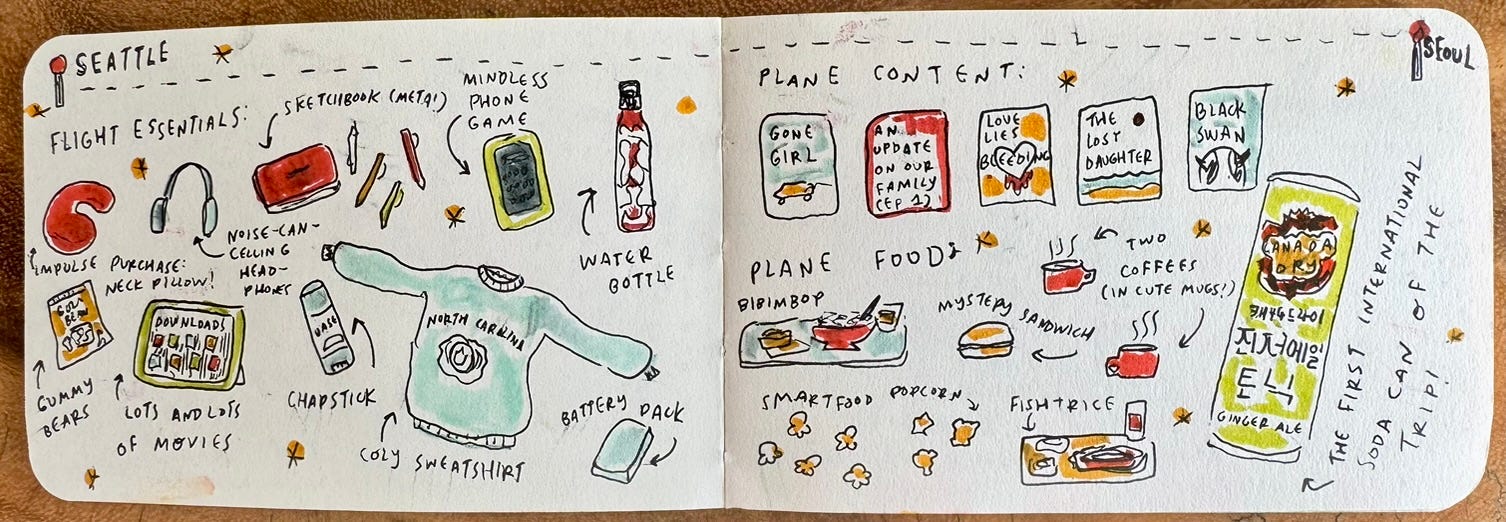 SEATTLE
FLIGHT ESSENTIALS:
SKETCHBOOK (META!)
MINDLESS
PHONE
GAME
WATER
BOTTLE
NOISE-CAN-
CELLING
HEAD-
PHONES
IMPULSE PURCHASE:
NECK PILLOW!
GUMMY
BEARS
DOWNLOADS
LOTS AND LOTS
OF MOVIES
CHAPSTICK
NORTH CAROLINA
COZY SWEATSHIRT
BATTERY PACK
SEOUL
PLANE CONTENT:
GONE
GIRL
AN
UPDATE
ON OUR
FAMILY
(EP 1)
LOVE
LIES
BLEEDING
THE
LOST
DAUGHTER
BLACK
SWAN
PLANE FOOD:
BIBIMBOP
MYSTERY SANDWICH
TWO
COFFEES
(IN CUTE MUGS!)
SMARTFOOD POPCORN
FISH + RICE
CANADA
DRY
캐나드라이
진저에일
토닉
GINGER ALE
THE FIRST INTERNATIONAL
SODA CAN OF THE
TRIP!